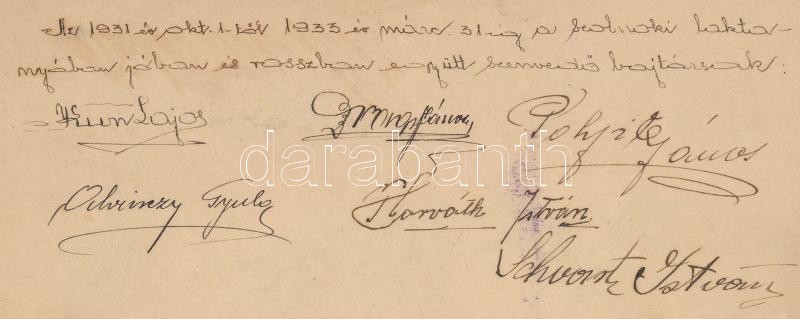 Az 1931 év okt. 1-től 1933 év márc. 31-ig a szolnoki lakta-
nyában jóban és rosszban együtt szenvedő bajtársak:
Kun Lajos
János
János
darabanth
Gyula
Horváth István
István